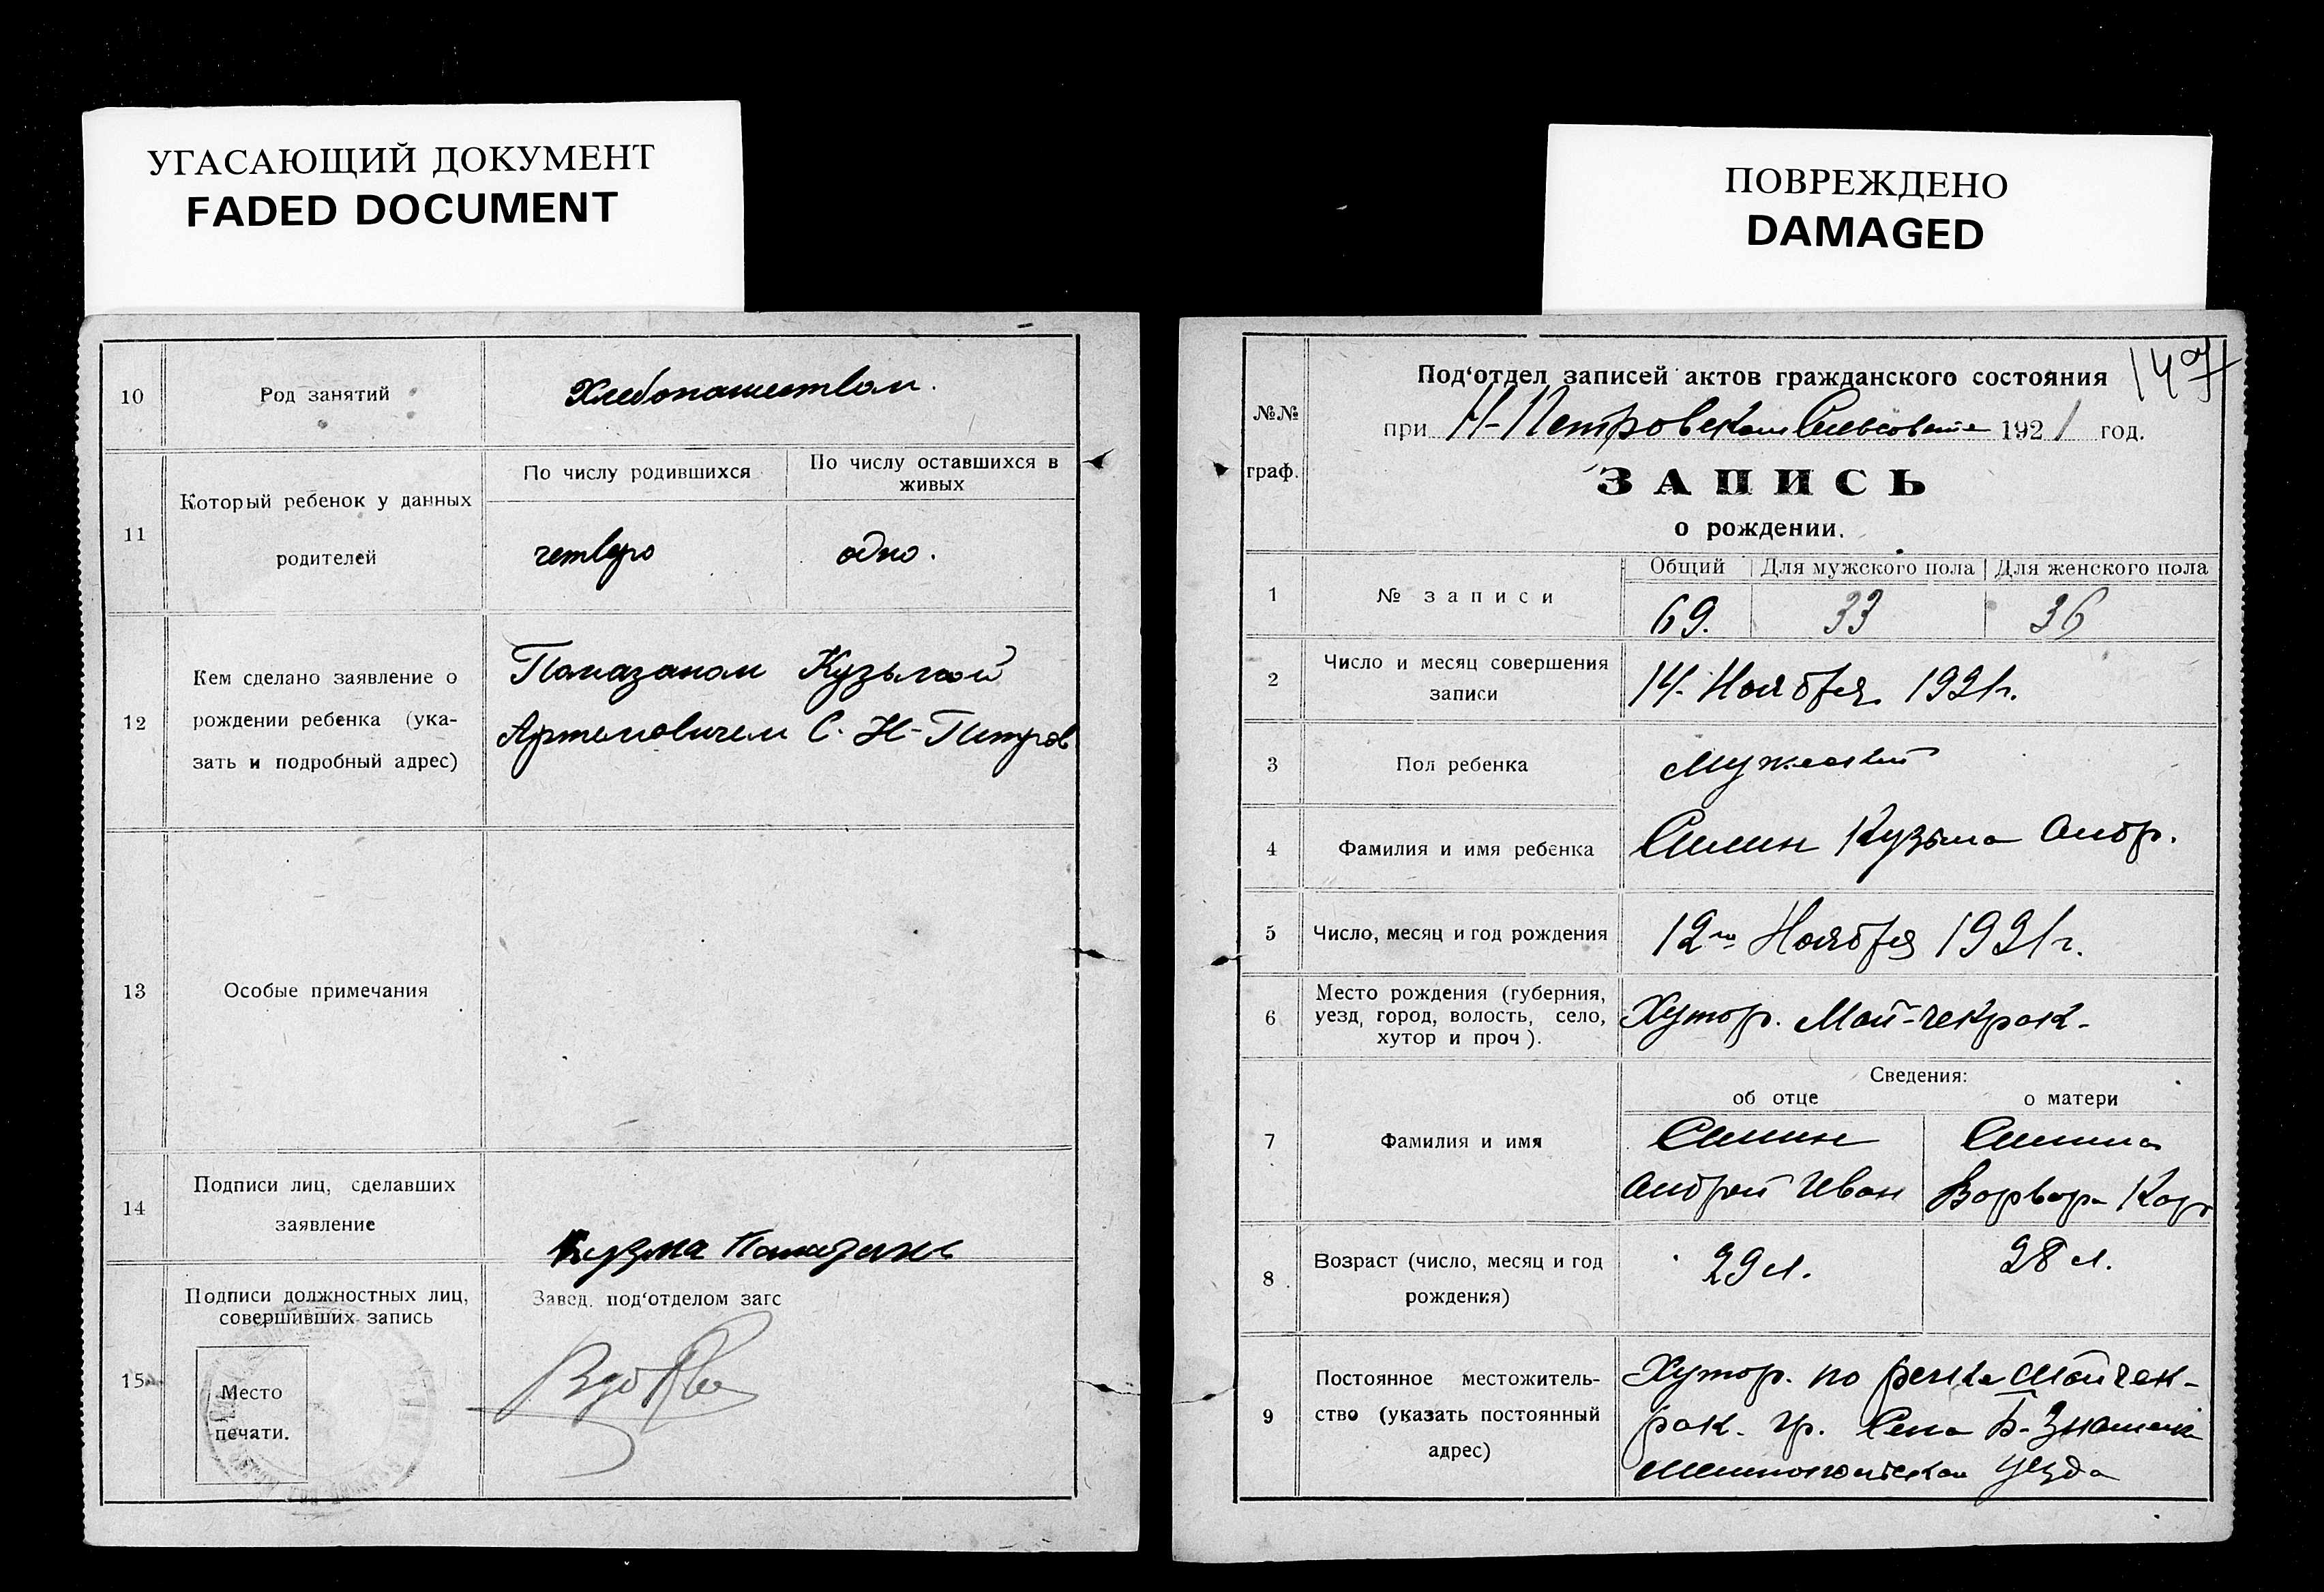 УГАСАЮЩИЙ ДОКУМЕНТ
FADED DOCUMENT
10
Род занятий
Хлебопашеством.
11
Который ребенок у данных
родителей
По числу родившихся
По числу оставшихся в
живых
четверо
одно.
12
Кем сделано заявление о
рождении ребенка (ука-
зать и подробный адрес)
Памазаном Кузьмой
Артемовичем С. Н-Петров
13
Особые примечания
14
Подписи лиц, сделавших
заявление
Кузма
15
Подписи должностных лиц,
совершивших запись
Место
печати.
Завед. под‘отделом загс
ПОВРЕЖДЕНО
DAMAGED
№№
граф.
Под‘отдел записей актов гражданского состояния
147
при Н-Петровском Сельсовете 1921 год.
ЗАПИСЬ
о рождении.
1
№ записи
Общий
Для мужского пола
Для женского пола
69.
33
36
2
Число и месяц совершения
записи
14. Ноября 1921г.
3
Пол ребенка
Мужеский
4
Фамилия и имя ребенка
Силин Кузьма Андр.
5
Число, месяц и год рождения
12го Ноября 1921г.
6
Место рождения (губерния,
уезд, город, волость, село,
хутор и проч).
Хутор. Мой-чекрак-
Сведения:
об отце
о матери
7
Фамилия и имя
Силин
Андрей Иван
Силина
Варвара Кар
8
Возраст (число, месяц и год
рождения)
29 л.
28 л.
9
Постоянное местожитель-
ство (указать постоянный
адрес)
Хутор. по речке Мойчек-
рак. гр. Села Б-Знаменк
Мелитопольском Уезда